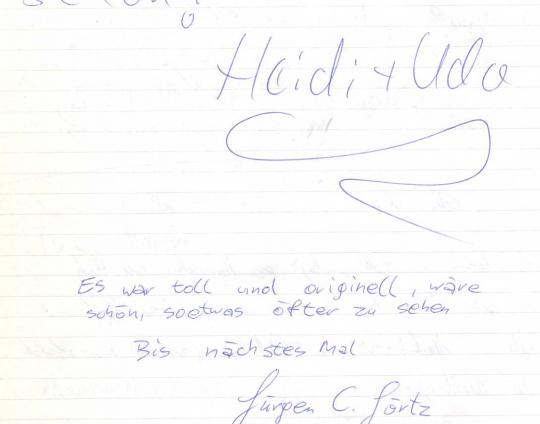 Heidi + Udo
Es war toll und originell, wäre
schön, soetwas öfter zu sehen
Bis nächstes Mal
Jürgen C. Görtz